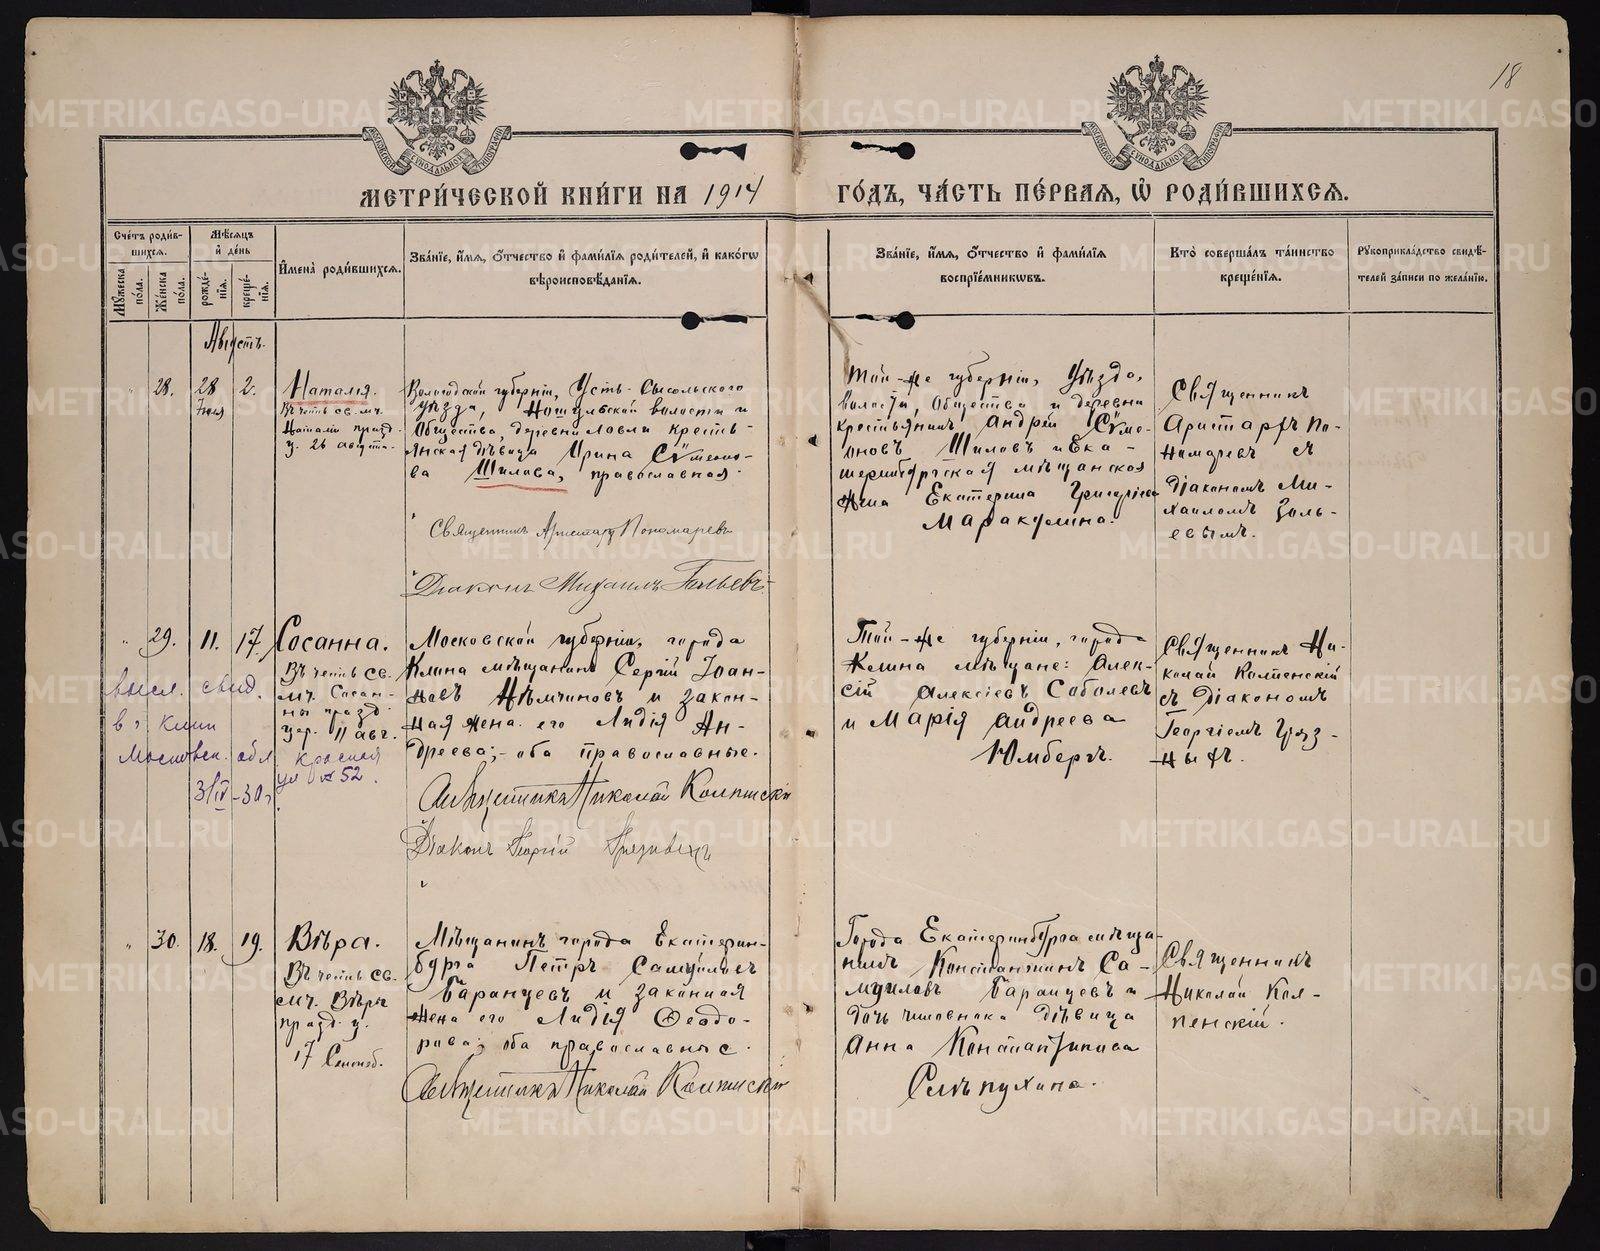 18
МЕТРИ́ЧЕСКОЙ КНИ́ГИ НА 1914 ГО́ДЪ, ЧА́СТЬ ПЕ́РВАЯ, Ѡ҆ РОДИ́ВШИХСЯ.
Сче́тъ роди́в-
шихся.
Му́жеска по́ла.
Же́нска по́ла.
Мѣ́сяцъ
и҆ де́нь
рожде́-
нїя.
креще́-
нїя.
И҆мена̀ роди́вшихся.
Зва́нїе, и҆́мя, ѻ҆́тчество и҆ фами́лїя роди́телей, и҆ како́гѡ
вѣроисповѣ́данїя.
Зва́нїе, и҆́мя, ѻ҆́тчество и҆ фами́лїя
воспрїе́мникѡвъ.
Кто̀ соверша́лъ та́инство
креще́нїя.
Рꙋкоприкла́дство свидѣ́-
телей за́писи по жела́нїю.
Августъ.
28. 28 2.
Іюля
Наталія.
Въ честь св. мч.
Наталіи празд.
ц. 26 августа.
Вологодской губерніи, Усть-Сысольского
уѣзда, Ношульской волости и
Общества, деревни Ловли кресть-
янская дѣвица Ирина Сѵмеоно-
ва Шилова, православная.
Священникъ Аристархъ Пономаревъ
Діаконъ Михаилъ Гольевъ
Той-же губерніи, уѣзда,
волости, Общества и деревни
крестьянинъ Андрей Сѵме-
оновъ Шиловъ и Ека-
теринбургская мѣщанская
жена Екатерина Григоріева
Маракулина.
Священникъ
Аристархъ По-
номаревъ съ
діакономъ Ми-
хаиломъ
29. 11. 17.
Сосанна.
Въ честь св.
мч. Сосан-
ны празд.
цер. 11 авг.
высл. свид.
в г Клин
Московск. обл Красная
ул № 52.
3/IV-30г
Московской губерніи, города
Клина мѣщанинъ Сергій Іоан-
новъ Нѣмчиновъ и закон-
ная жена его Лидія Ан-
дреева; - оба православные.
Священникъ Николай Колпенскій
Діаконъ Георгій Грязныхъ
Той-же губерніи, города
Клина мѣщане: Алек-
сій Алексіевъ Соболевъ
и Марія Андреева
Юмбергъ.
Священникъ Ни-
колай Колпенскій
съ Діакономъ
Георгіемъ Гряз-
ныхъ.
30. 18. 19.
Вѣра.
Въ честь св.
мч. Вѣры
празд. ц.
17 Сентяб.
Мѣщанинъ города Екатерин-
бурга Петръ Самуиловъ
Баранцевъ и законная
жена его Лидія Ѳеодо-
рова; оба православные.
Священникъ Николай Колпенскій
Города Екатеринбурга мѣща-
нинъ Константинъ Са-
муиловъ Баранцевъ и
дочь чиновника дѣвица
Анна Константинова
Слѣпухина.
Священникъ
Николай Кол-
пенскій.
METRIKI.GASO-URAL.RU